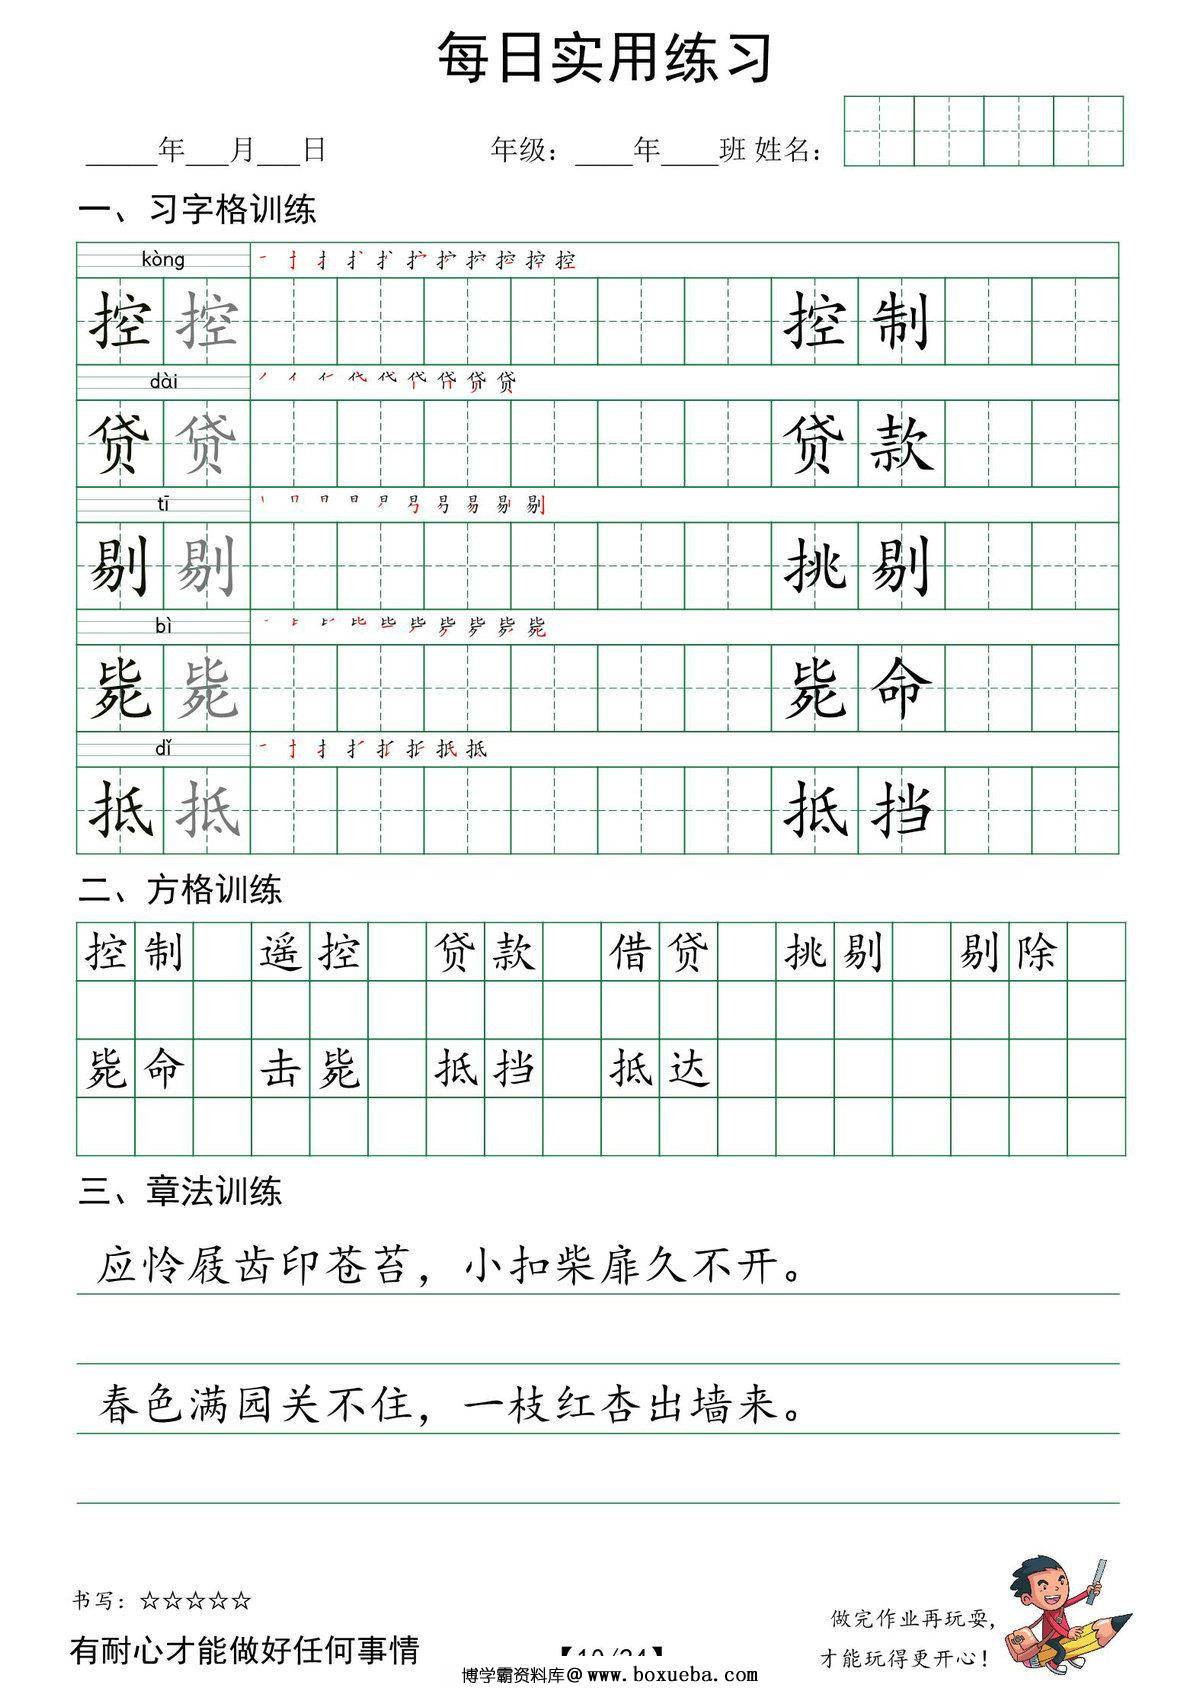 每日实用练习
_____年___月___日 年级：____年____班 姓名：
一、习字格训练
kòng 一 扌 控
控 控 控 制
dài 代 贷
贷 贷 贷 款
tī 日 易 剔
剔 剔 挑 剔
bì 毕 毙
毙 毙 毙 命
dǐ 一 扌 抵
抵 抵 抵 挡
二、方格训练
控 制 遥 控 贷 款 借 贷 挑 剔 剔 除
毙 命 击 毙 抵 挡 抵 达
三、章法训练
应怜屐齿印苍苔，小扣柴扉久不开。
春色满园关不住，一枝红杏出墙来。
书写：☆☆☆☆☆
做完作业再玩耍，
有耐心才能做好任何事情
才能玩得更开心！
博学霸资料库@www.boxueba.com